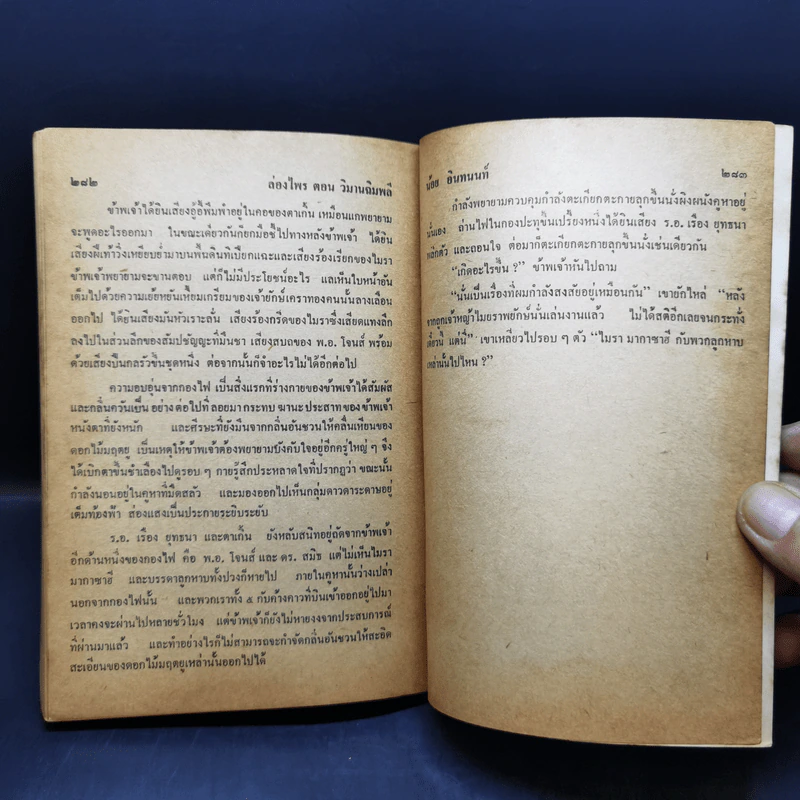 ๒๘๒ ล่องไพร ตอน วิมานฉิมพลี
ข้าพเจ้าได้ยินเสียงอู้อี้พึมพำอยู่ในคอของตาเกิ้น เหมือนแกพยายาม
จะพูดอะไรออกมา ในขณะเดียวกันก็ยกมือชี้ไปทางหลังข้าพเจ้า ได้ยิน
เสียงฝีเท้าวิ่งเหยียบย่ำมาบนพื้นดินที่เปียกแฉะและเสียงร้องเรียกของไมรา
ข้าพเจ้าพยายามจะขานตอบ แต่ก็ไม่มีประโยชน์อะไร แลเห็นใบหน้าอัน
เต็มไปด้วยความเย้ยหยันเหี้ยมเกรียมของเจ้ายักษ์เคราทองคนนั้นลางเลือน
ออกไป ได้ยินเสียงมันหัวเราะลั่น เสียงร้องกรีดของไมราซึ่งเสียดแทงลึก
ลงไปในส่วนลึกของสัมปชัญญะที่มึนชา เสียงสบถของ พ.อ. โจนส์ พร้อม
ด้วยเสียงปืนกลรัวขึ้นชุดหนึ่ง ต่อจากนั้นก็จำอะไรไม่ได้อีกต่อไป
ความอบอุ่นจากกองไฟ เป็นสิ่งแรกที่ร่างกายของข้าพเจ้าได้สัมผัส
และกลิ่นควันเป็น อย่าง ต่อไปที่ ลอยมา กระทบ ฆานะ ประสาท ของ ข้าพเจ้า
หนังตาที่ยังหนัก และศีรษะที่ยังมึนจากกลิ่นอันชวนให้คลื่นเหียนของ
ดอกไม้มฤตยู เป็นเหตุให้ข้าพเจ้าต้องพยายามบังคับใจอยู่อีกครู่ใหญ่ ๆ จึง
ได้เบิกตาขึ้นชำเลืองไปดูรอบ ๆ กายรู้สึกประหลาดใจที่ปรากฏว่า ขณะนั้น
กำลังนอนอยู่ในคูหาที่มืดสลัว และมองออกไปเห็นกลุ่มดาวดาระดาษอยู่
เต็มท้องฟ้า ส่องแสงเป็นประกายระยิบระยับ
ร.อ. เรือง ยุทธนา และตาเกิ้น ยังหลับสนิทอยู่ถัดจากข้าพเจ้า
อีกด้านหนึ่งของกองไฟ คือ พ.อ. โจนส์ และ ดร. สมิธ แต่ไม่เห็นไมรา
มากาซาฮี และบรรดาลูกหาบทั้งปวงก็หายไป ภายในคูหานั้นว่างเปล่า
นอกจากกองไฟนั้น และพวกเราทั้ง ๕ กับค้างคาวที่บินเข้าออกอยู่ไปมา
เวลาคงจะผ่านไปหลายชั่วโมง แต่ข้าพเจ้าก็ยังไม่หายงงจากประสบการณ์
ที่ผ่านมาแล้ว และทำอย่างไรก็ไม่สามารถจะกำจัดกลิ่นอันชวนให้สะอิด
สะเอียนของดอกไม้มฤตยูเหล่านั้นออกไปได้
น้อย อินทนนท์ ๒๘๓
กำลังพยายามควบคุมกำลังตะเกียกตะกายลุกขึ้นนั่งผิงผนังคูหาอยู่
นั่นเอง ถ่านไฟในกองปะทุขึ้นเปรี้ยงหนึ่งได้ยินเสียง ร.อ. เรือง ยุทธนา
พลิกตัว และถอนใจ ต่อมาก็ตะเกียกตะกายลุกขึ้นนั่งเช่นเดียวกัน
“เกิดอะไรขึ้น ?” ข้าพเจ้าหันไปถาม
“นั่นเป็นเรื่องที่ผมกำลังสงสัยอยู่เหมือนกัน” เขายักไหล่ “หลัง
จากถูกเจ้าหญ้าไมยราพยักษ์นั่นเล่นงานแล้ว ไม่ได้สติอีกเลยจนกระทั่ง
เดี๋ยวนี้ แด่นี่” เขาเหลียวไปรอบ ๆ ตัว “ไมรา มากาซาฮี กับพวกลูกหาบ
เหล่านั้นไปไหน ?”